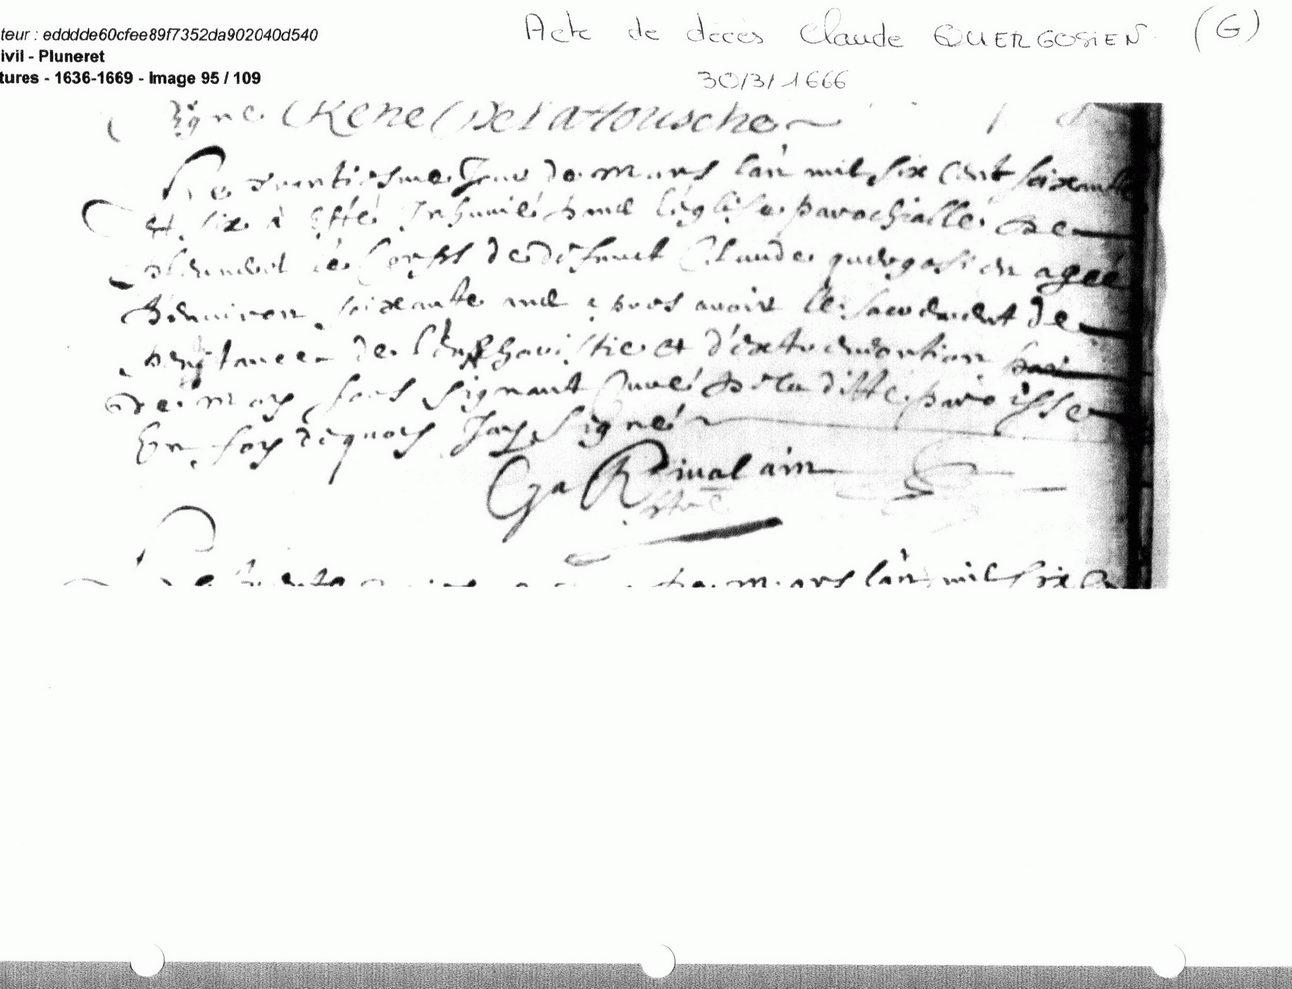 teur : edddde60cfee89f7352da902040d540
ivil - Pluneret
tures - 1636-1669 - Image 95 / 109
Acte de décès Claude QUERGOSIEN (G)
30/3/1666
signe René De la tousche
Le trantiesme Jour de mars l'an mil six cent soixante
et six à esté Inhumé dans l'église parochialle de
pluneret le corps de defunct Claude quergosien agee
d'environ soixante ans apres avoir le sacrement de
penitance de l'eucharistie et d'extremonction par
de moy soub signant Curé de la ditte paroisse
En foy de quoy Jay signé
Ga Rivalain
mars l'an mil six